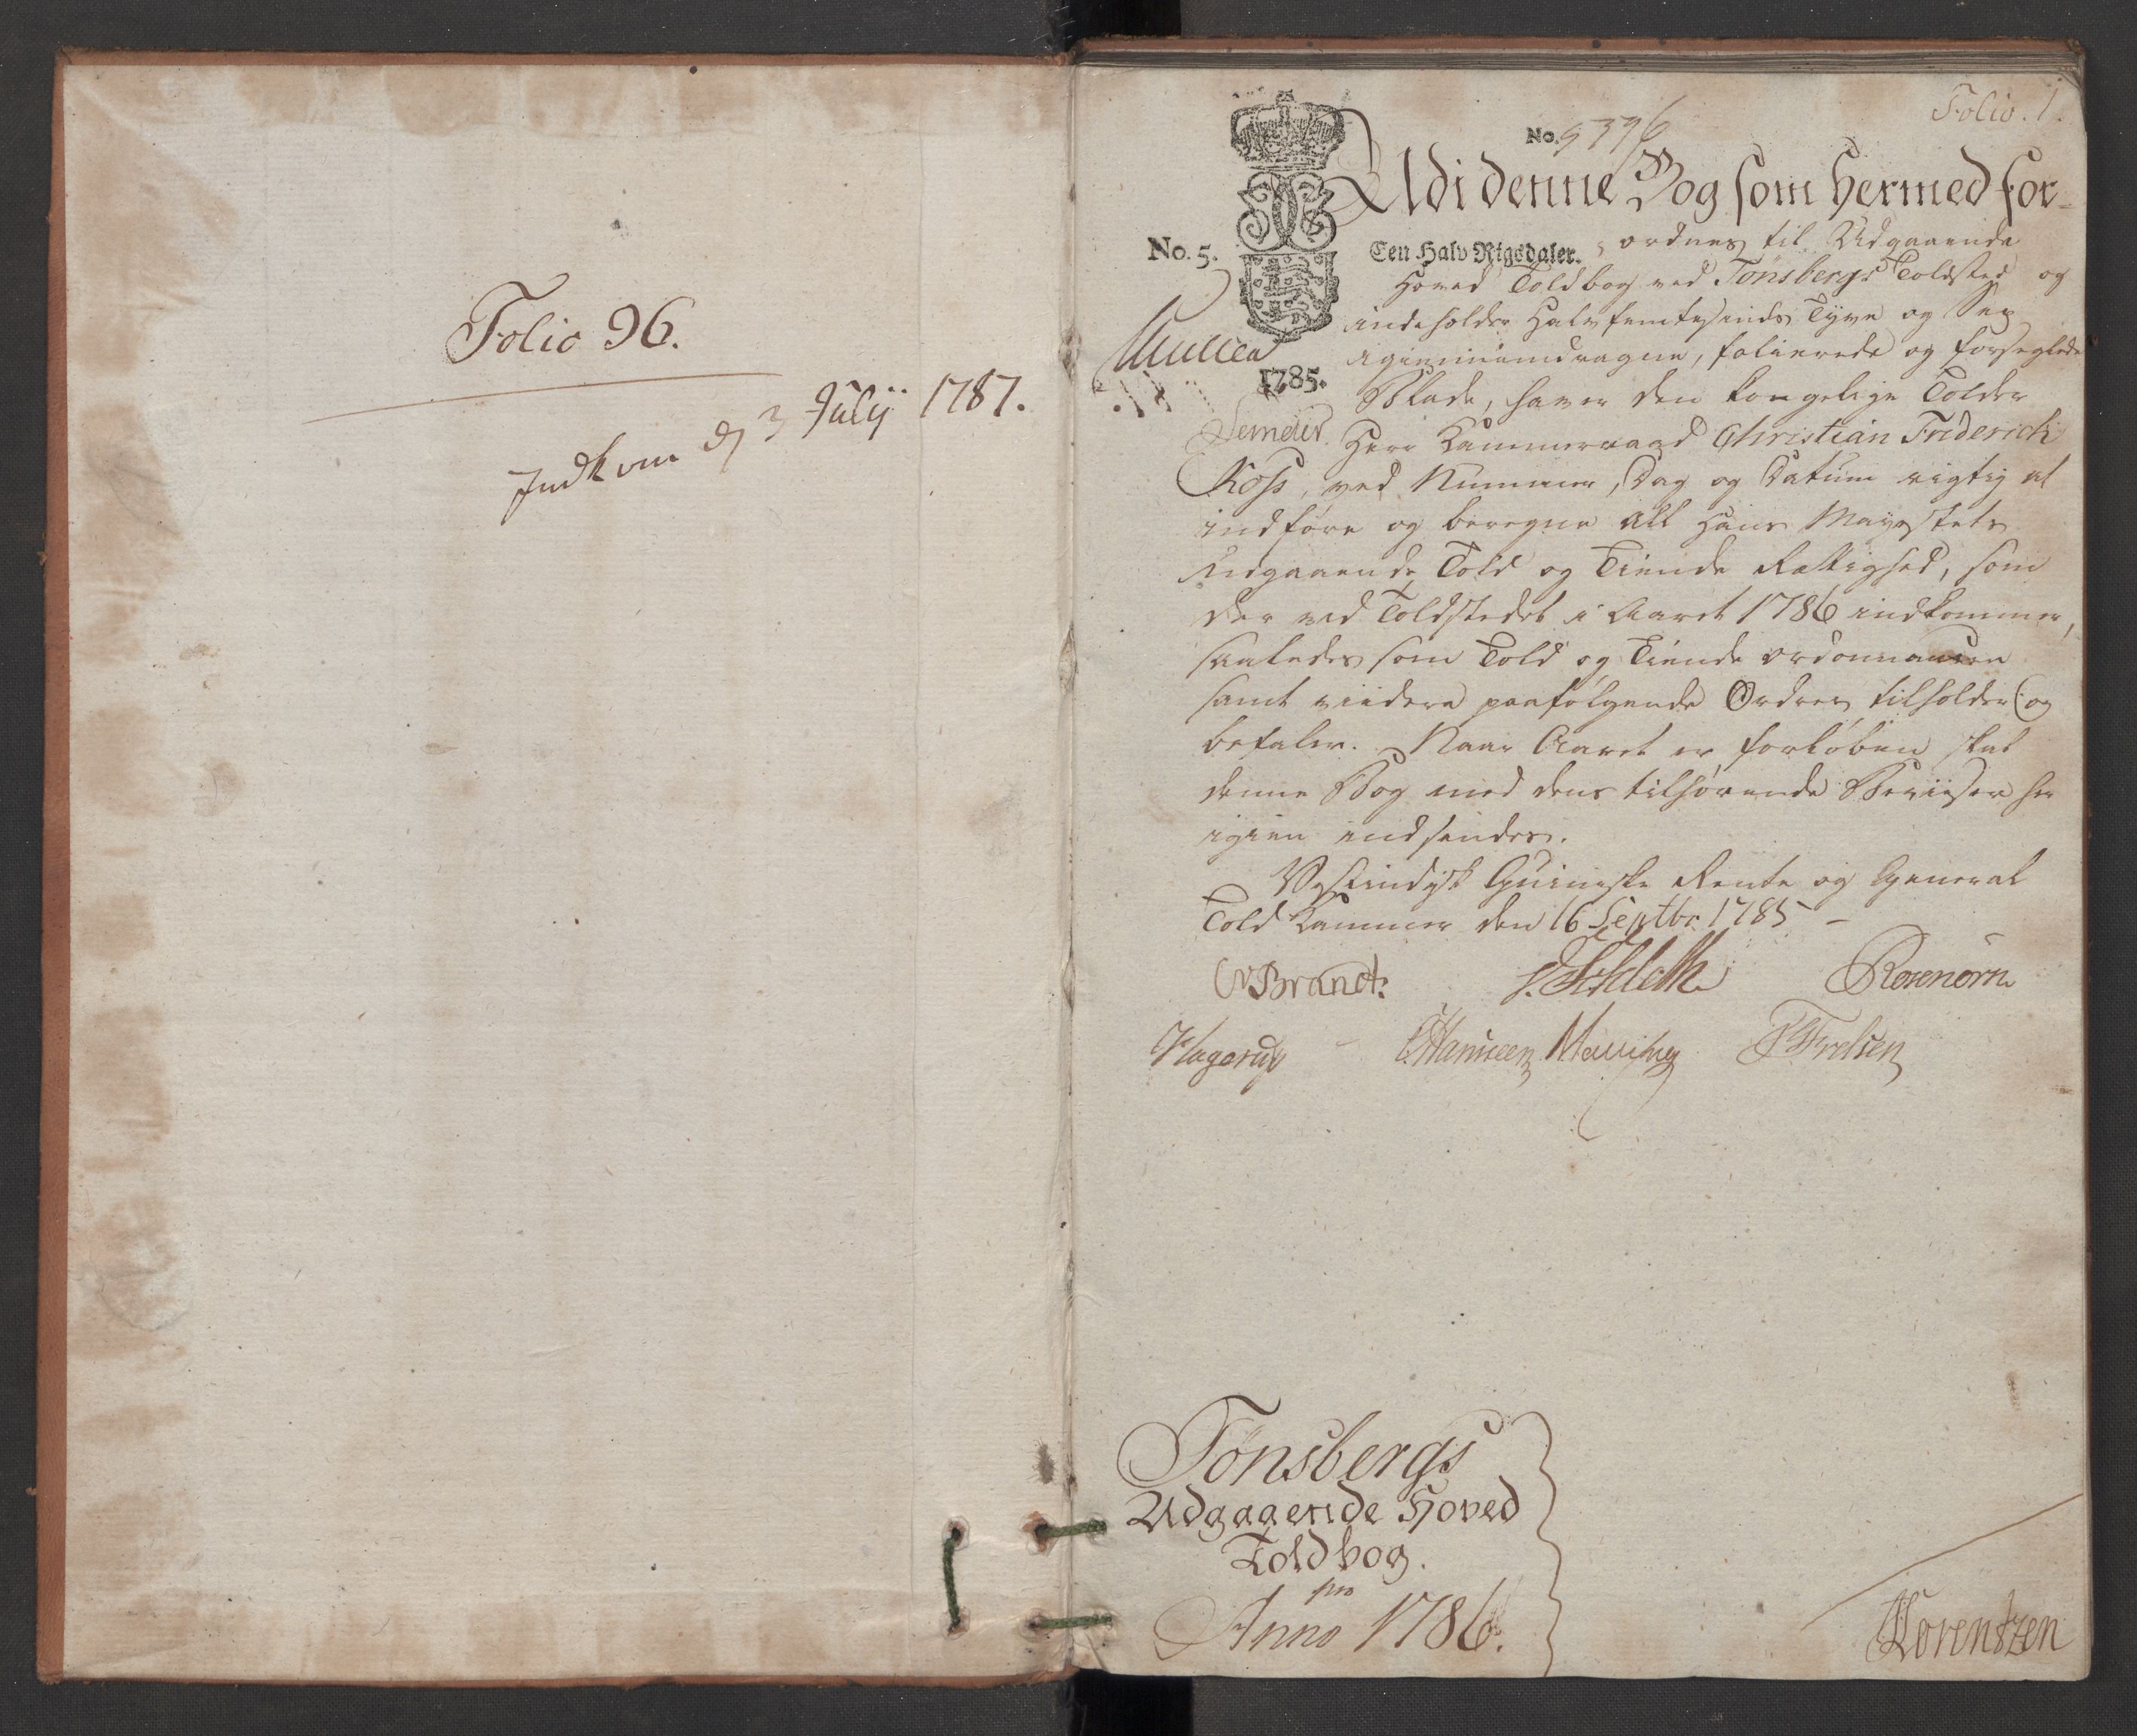 Folio 96.
Indkom d 3 Julij 1787.
Folio. 1.
No. 5396
Udi denne Bog som hermed for-
No. 5.
Een Halv Rigsdaler.
ordnes til Udgaaende
Hoved Toldbog ved Tønsbergs Toldsted og
indeholder Halvfemtesinds Tyve og Sex
igiennemdragne, folierede og forseglede
1785.
Blade, haver den kongelige Tolder
Herr Kammerraad Christian Friderich
Koss, ved Nummer, Dag og Datum rigtig at
indføre og beregne all Hans Mayestets
udgaaende Told og Tiende Rettighed, som
der ved Toldstedet i Aaret 1786 indkommer,
saaledes som Told og Tiende ordonnancen
samt viidere paafølgende Ordrer tilholder og
befaler. Naar Aaret er forløben skal
denne Bog med dens tilhørende Beviiser her
igien indsendes.
Vestindisk Guineiske Rente og General
Told Kammer den 16 Septbr. 1785
Brandt.
Rosenørn
Hagerup
Hansen
Malling
Frelsen
Tønsbergs
Udgaaende Hoved
Toldbog.
pro
Anno 1786.
Lorentzen